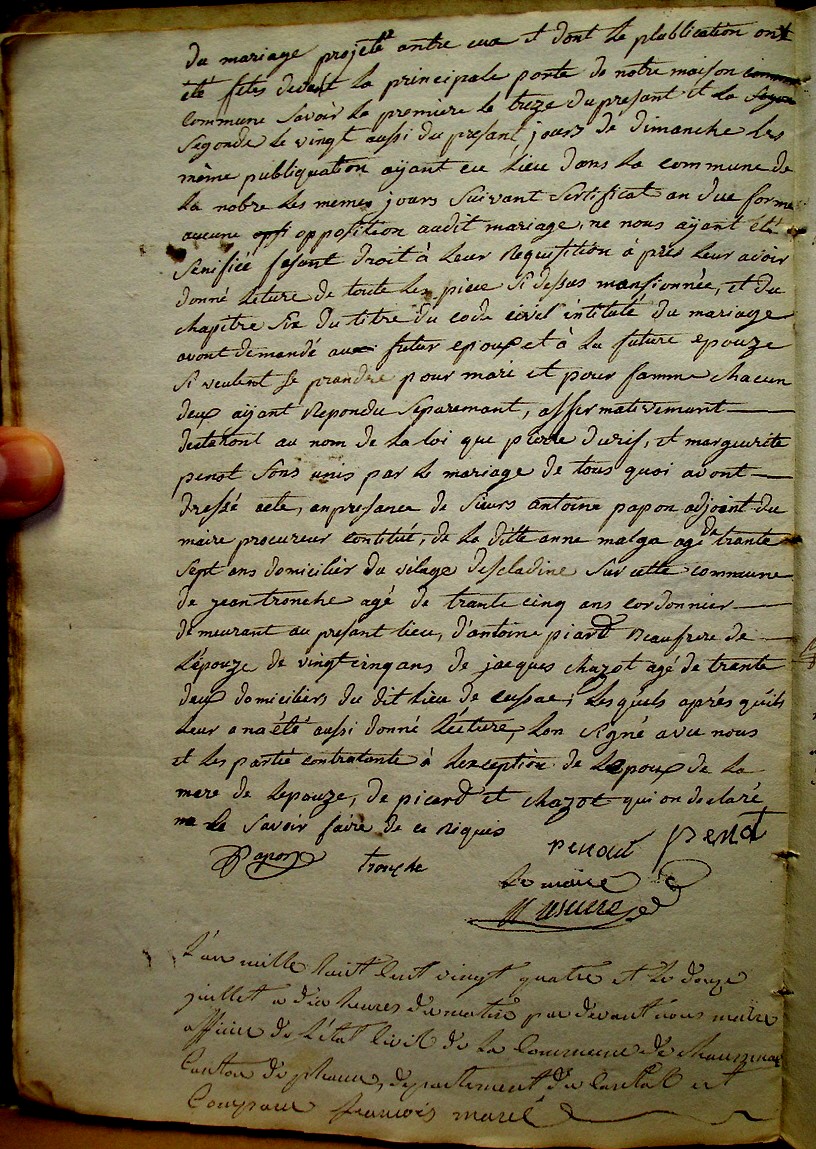 du mariage projeté antre eux et dont la plublication ont
été fètes devant la principale porte de notre maison
commune savoir la premiere le treze du presant et la
segonde le vingt aussi du presant jours de dimanche les
même publiquation aÿant eu lieu dans la commune de
la nobre les memes jours suivant sertificat an due forme
aucune opposition audit mariage, ne nous aÿant été
senifiée fesant droit à leur requisition à près leur avoir
donné leture de toute les piece si dessus mansionnée, et du
chapitre six du titre du code civil intitulé du mariage
avont demandé au futur epoux et à la future epouze
si veulent se prandre pour mari et pour famme chacun
deux aÿant repondu separemant, affermativemant
declaront au nom de la loi que pierre durif, et margueritte
penot sons unis par le mariage de tous quoi avont
dressé acte, anpresance de sieurs antoine papon adjoint du
maire procureur contitué, de la ditte anne malga agé de trante
sept ans domicilier du vilage descladine sur cette commune
de jean tronche agé de trante cinq ans cordonnier
demeurant au presant lieu, d'antoine piard beaufrere de
l'épouze de vingt cinq ans de jacques chazot agé de trante
deux domiciliers du dit lieu de cussac; lesquels après qu'ils
leur ana été aussi donné lecture, lon signé avec nous
et les partie contratante à lexceptiòn de lepoux de la
mere de lepouze, de picard et chazot qui on declaré
ne le savoir faire de ce riquis
penot
Papon tronche
le maire
L'an mille huit cent vingt quatre et le douze
juillet a dix heures du matin par devant nous maire
officier de l'état civil de la commune de
Canton de , departement du Cantal est
Comparu francois